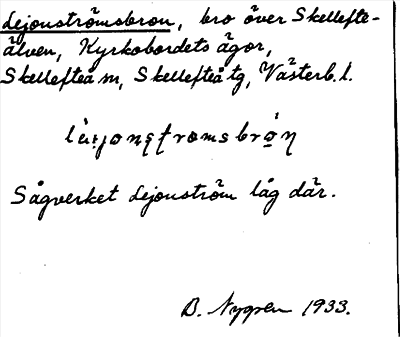 Lejonströmsbron, bro över Skellefte-
älven, Kyrkobordets ägor,
Skellefteå m, Skellefteå tg, Västerb. l.
Sågverket Lejonström låg där.
B. Nygren 1933.